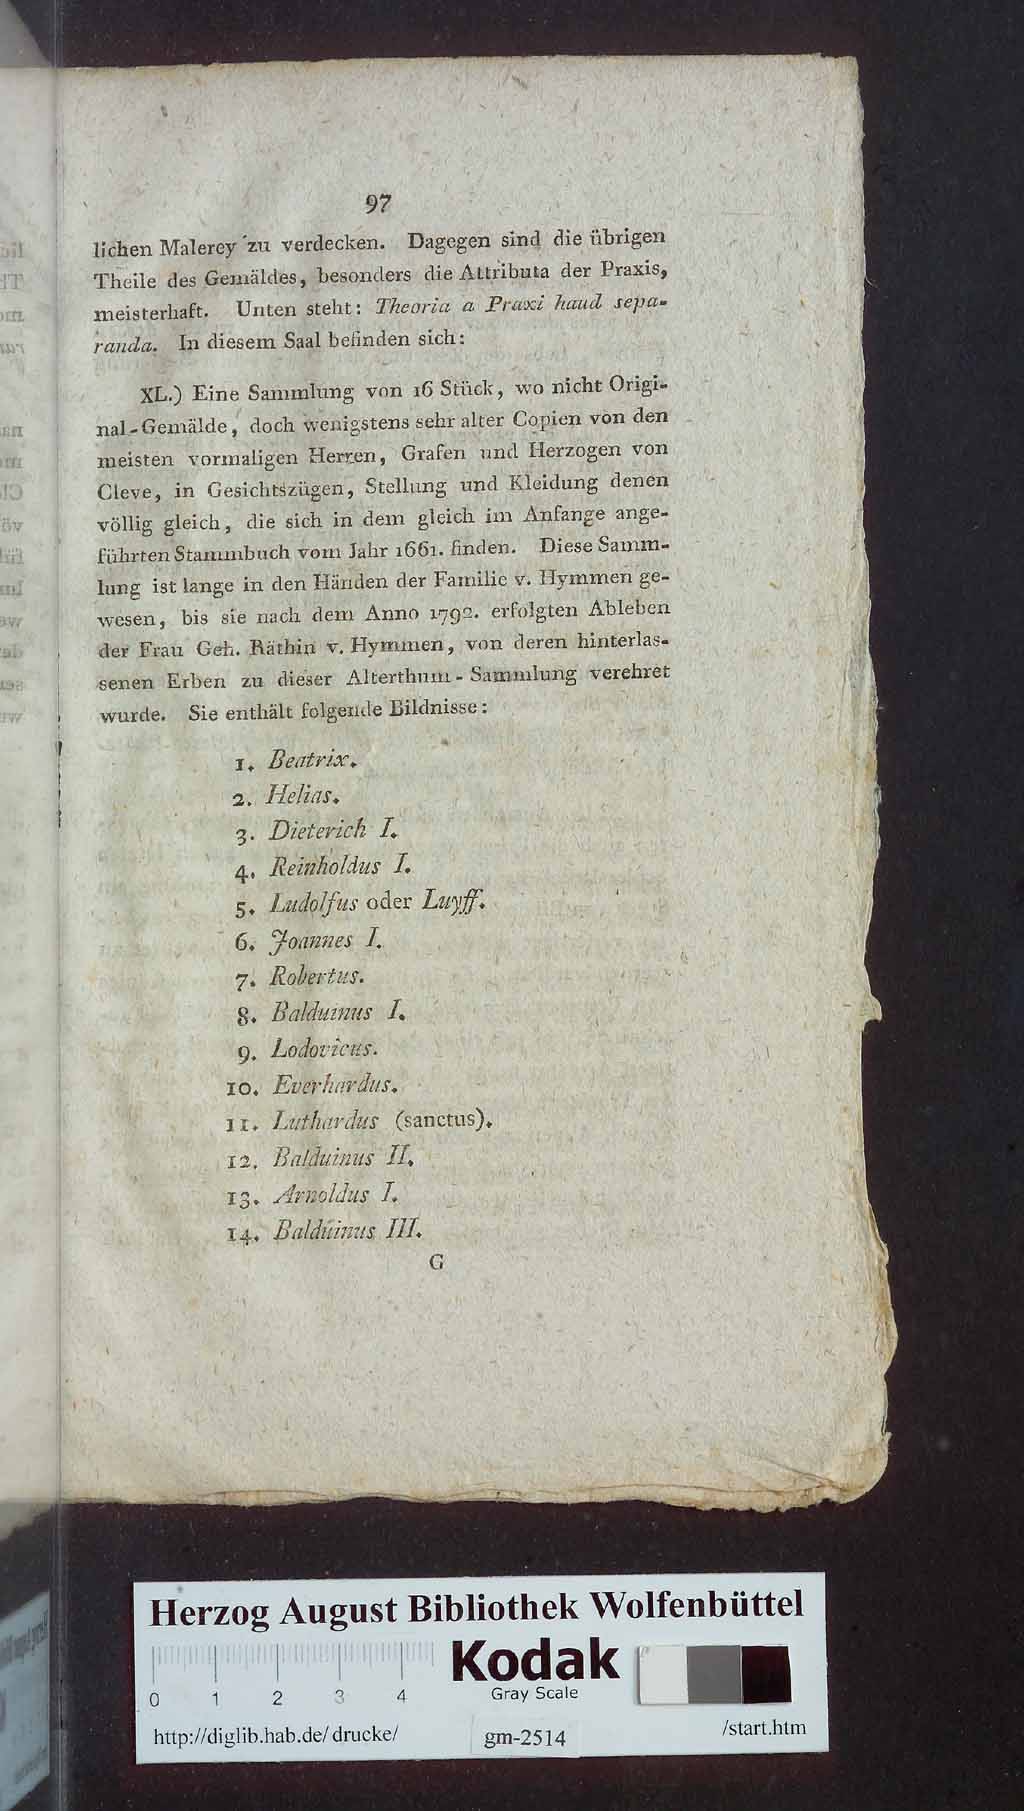 97
lichen Malerey zu verdecken. Dagegen sind die übrigen
Theile des Gemäldes, besonders die Attributa der Praxis,
meisterhaft. Unten steht: Theoria a Praxi haud sepa-
randa. In diesem Saal befinden sich:
XL.) Eine Sammlung von 16 Stück, wo nicht Origi-
nal-Gemälde, doch wenigstens sehr alter Copien von den
meisten vormaligen Herren, Grafen und Herzogen von
Cleve, in Gesichtszügen, Stellung und Kleidung denen
völlig gleich, die sich in dem gleich im Anfange ange-
führten Stammbuch vom Jahr 1661. finden. Diese Samm-
lung ist lange in den Händen der Familie v. Hymmen ge-
wesen, bis sie nach dem Anno 1792. erfolgten Ableben
der Frau Geh. Räthin v. Hymmen, von deren hinterlas-
senen Erben zu dieser Alterthum-Sammlung verehret
wurde. Sie enthält folgende Bildnisse:
1. Beatrix.
2. Helias.
3. Dieterich I.
4. Reinholdus I.
5. Ludolfus oder Luyff.
6. Joannes I.
7. Robertus.
8. Balduinus I.
9. Lodovicus.
10. Everhardus.
11. Luthardus (sanctus).
12. Balduinus II.
13. Arnoldus I.
14. Balduinus III.
G
Herzog August Bibliothek Wolfenbüttel
Kodak
Gray Scale
0 1 2 3 4
http://diglib.hab.de/drucke/ gm-2514 /start.htm